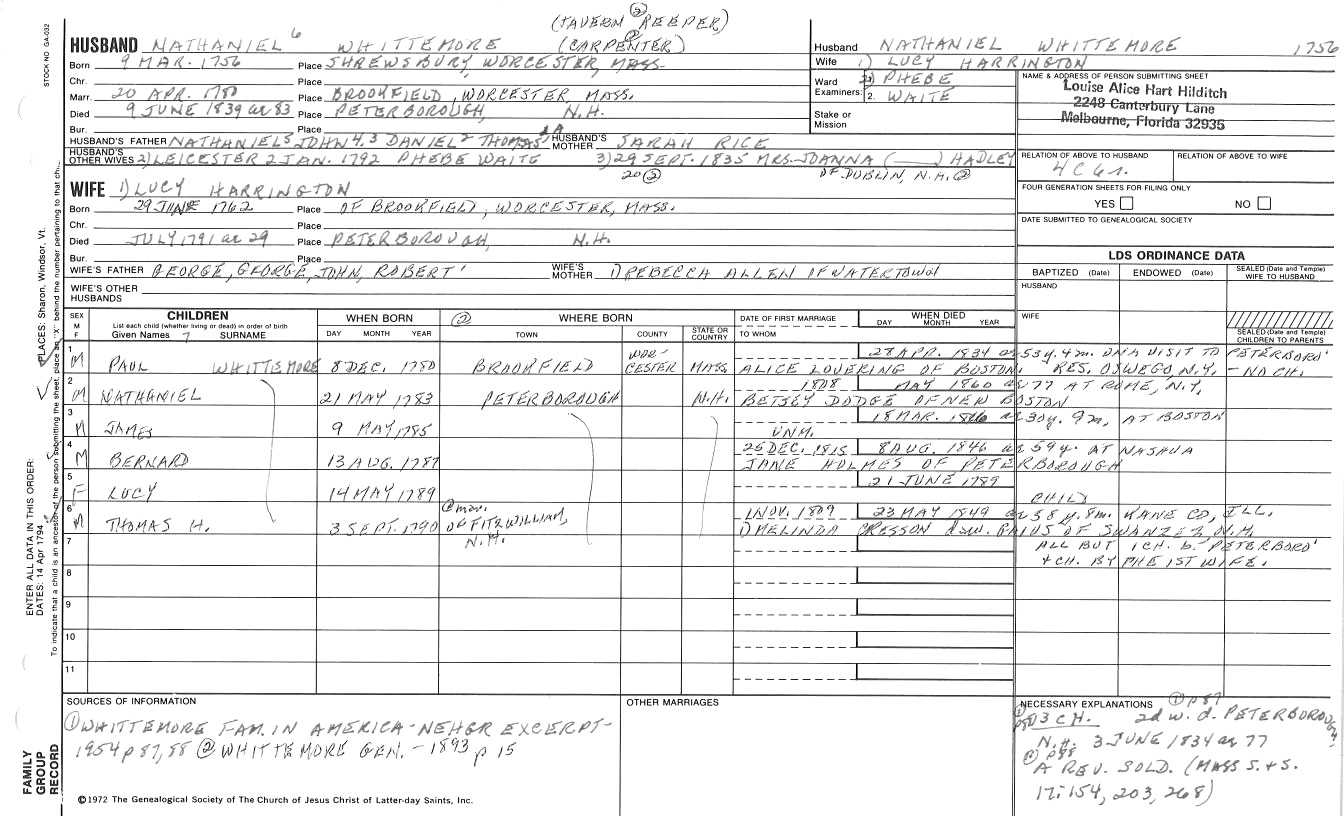 STOCK NO GA-032
(TAVERN KEEPER) ②
(CARPENTER) ②
HUSBAND NATHANIEL 6 WHITTEMORE
Born 9 MAR. 1756 Place SHREWSBURY, WORCESTER, MASS.
Chr. Place
Marr. 20 APR. 1780 Place BROOKFIELD, WORCESTER, MASS.
Died 9 JUNE 1839 ae 83 Place PETERBOROUGH, N.H.
Bur. Place
HUSBAND'S FATHER NATHANIEL 5 JOHN 4,3 DANIEL 2 THOMAS HUSBAND'S MOTHER SARAH RICE
HUSBAND'S OTHER WIVES 2) LEICESTER 2 JAN. 1792 PHEBE WAITE 3) 29 SEPT. 1835 MRS. JOANNA (___) HADLEY
OF DUBLIN, N.H. ②
WIFE 1) LUCY HARRINGTON
Born 29 JUNE 1762 Place OF BROOKFIELD, WORCESTER, MASS.
Chr. Place
Died JULY 1791 ae 29 Place PETERBOROUGH, N.H.
Bur. Place
WIFE'S FATHER GEORGE, GEORGE, JOHN, ROBERT 1 WIFE'S MOTHER 1) REBECCA ALLEN OF WATERTOWN
WIFE'S OTHER HUSBANDS
Husband NATHANIEL WHITTEMORE 1756
Wife 1) LUCY HARRINGTON
Ward Examiners: 2) PHEBE
2. WAITE
Stake or Mission
NAME & ADDRESS OF PERSON SUBMITTING SHEET
Louise Alice Hart Hilditch
2248 Canterbury Lane
Melbourne, Florida 32935
RELATION OF ABOVE TO HUSBAND RELATION OF ABOVE TO WIFE
4C6r.
FOUR GENERATION SHEETS FOR FILING ONLY
YES NO
DATE SUBMITTED TO GENEALOGICAL SOCIETY
LDS ORDINANCE DATA
BAPTIZED (Date) ENDOWED (Date) SEALED (Date and Temple) WIFE TO HUSBAND
HUSBAND
WIFE
SEALED (Date and Temple) CHILDREN TO PARENTS
SEX M F
CHILDREN
List each child (whether living or dead) in order of birth
Given Names 7 SURNAME
WHEN BORN
DAY MONTH YEAR
② WHERE BORN
TOWN COUNTY STATE OR COUNTRY
DATE OF FIRST MARRIAGE
TO WHOM
WHEN DIED
DAY MONTH YEAR
1 M PAUL WHITTEMORE 8 DEC. 1780 BROOKFIELD WORCESTER MASS. 28 APR. 1834 ae 53y. 4m. ON A VISIT TO PETERBORO'
ALICE LOVERING OF BOSTON. RES. OSWEGO, N.Y. - NO CH.
2 M NATHANIEL 21 MAY 1783 PETERBOROUGH N.H. 1808 MAY 1860 ae 77 AT ROME, N.Y.
BETSEY DODGE OF NEW BOSTON
3 M JAMES 9 MAY 1785 UNM. 18 MAR. 1816 ae 30y. 9m. AT BOSTON
4 M BERNARD 13 AUG. 1787 25 DEC. 1815 8 AUG. 1846 ae 59y. AT NASHUA
JANE HOLMES OF PETERBOROUGH
5 F LUCY 14 MAY 1789 21 JUNE 1789 CHILD
6 M THOMAS H. 3 SEPT. 1790 OF FITZWILLIAM, N.H. 1 NOV. 1809 23 MAY 1849 ae 58y. 8m. KANE CO, ILL.
1) MELINDA CRESSON OF SWANZEY, N.H.
7 ALL BUT 1 CH. b. PETERBORO'
+ CH. BY THE 1ST WIFE.
8
9
10
11
SOURCES OF INFORMATION
① WHITTEMORE FAM. IN AMERICA - NEHGR EXCERPT -
1954 p 87, 88 ② WHITTEMORE GEN. - 1893 p 15
OTHER MARRIAGES
NECESSARY EXPLANATIONS ① p 87
3 CH. 2d W. d. PETERBOROUGH
N.H. 3 JUNE 1834 ae 77
① p 88
A REV. SOLD. (MASS S. + S.
17:154, 203, 268)
©1972 The Genealogical Society of The Church of Jesus Christ of Latter-day Saints, Inc.
FAMILY GROUP RECORD
ENTER ALL DATA IN THIS ORDER:
DATES: 14 Apr 1794
PLACES: Sharon, Windsor, Vt.
To indicate that a child is an ancestor of the person submitting the sheet, place an "X" behind the number pertaining to that ch